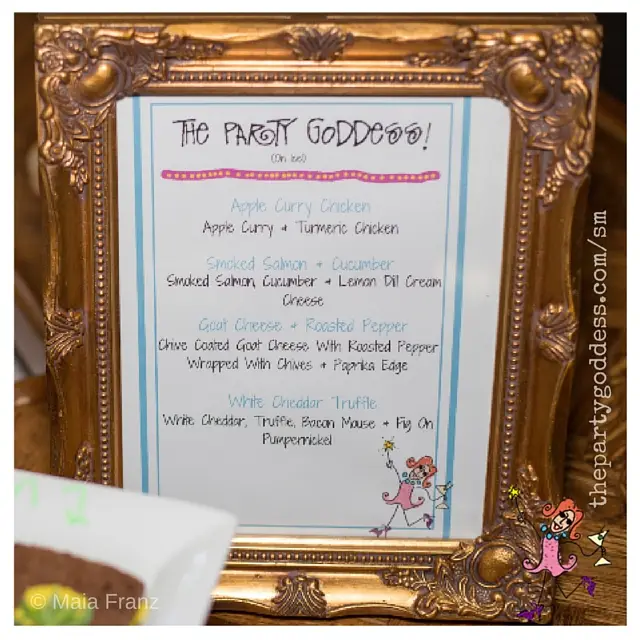 THE PARTY GODDESS!
(On Ice!)
Apple Curry Chicken
Apple Curry & Turmeric Chicken
Smoked Salmon & Cucumber
Smoked Salmon, Cucumber & Lemon Dill Cream
Cheese
Goat Cheese & Roasted Pepper
Chive Coated Goat Cheese With Roasted Pepper
Wrapped With Chives & Paprika Edge
White Cheddar Truffle
White Cheddar, Truffle, Bacon Mouse & Fig On
Pumpernickel
thepartygoddess.com/sm
© Maia Franz